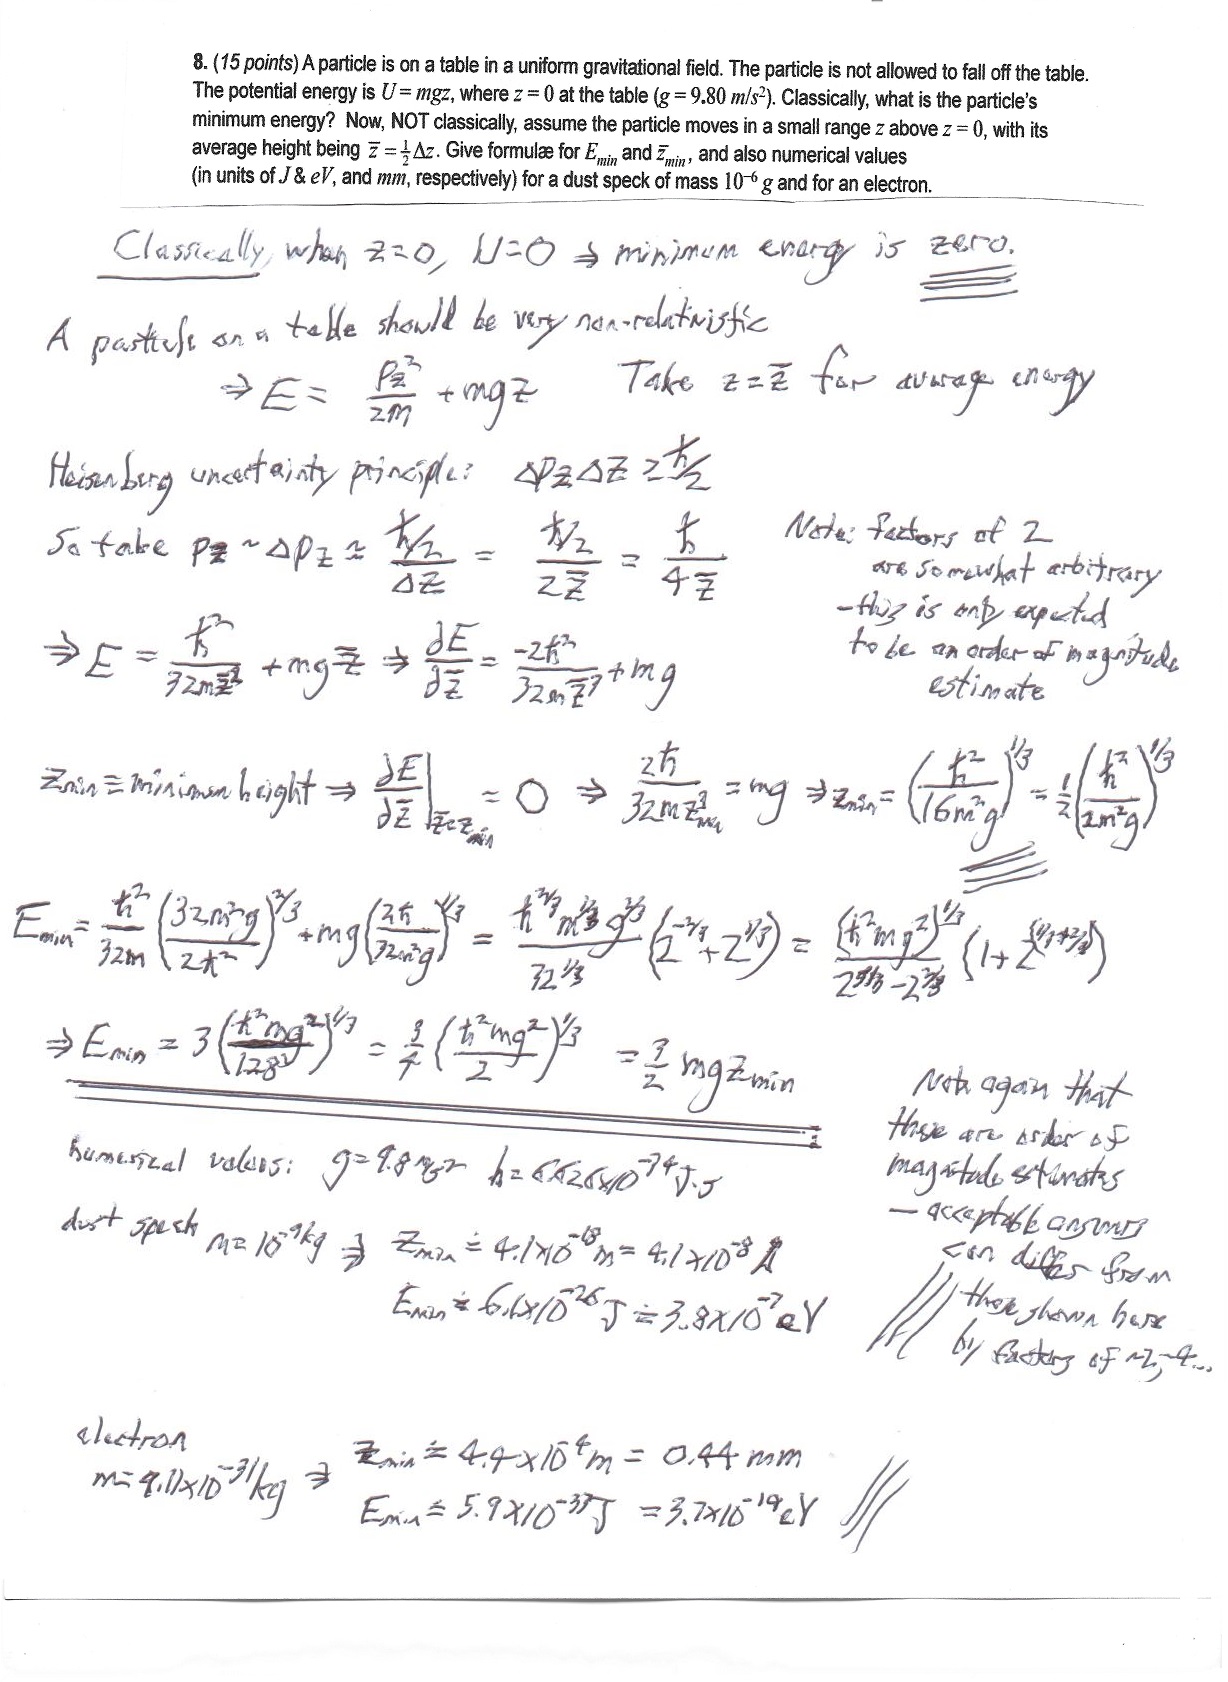 8. (15 points) A particle is on a table in a uniform gravitational field. The particle is not allowed to fall off the table.
The potential energy is U = mgz, where z = 0 at the table (g = 9.80 m/s²). Classically, what is the particle's
minimum energy? Now, NOT classically, assume the particle moves in a small range z above z = 0, with its
average height being z̄ = ½Δz. Give formulæ for E_min and z̄_min, and also numerical values
(in units of J & eV, and mm, respectively) for a dust speck of mass 10⁻⁶ g and for an electron.
Classically, when z=0, U=0 ⇒ minimum energy is zero.
A particle on a table should be very non-relativistic
⇒ E = p_z²/2m + mgz Take z = z̄ for average energy
Heisenberg uncertainty principle: Δp_z Δz ≥ ħ/2
So take p_z ~ Δp_z ≈ (ħ/2)/Δz = (ħ/2)/(2z̄) = ħ/(4z̄)
Note: factors of 2
are somewhat arbitrary
- this is only expected
to be an order of magnitude
estimate
⇒ E = ħ²/(32mz̄²) + mgz̄ ⇒ ∂E/∂z̄ = -2ħ²/(32mz̄³) + mg
z_min ≡ minimum height ⇒ ∂E/∂z̄ |_z̄=z_min = 0 ⇒ 2ħ/(32mz³_min) = mg ⇒ z_min = (ħ²/(16m²g))^1/3 = ½(ħ²/(2m²g))^1/3
E_min = ħ²/32m (32m²g/2ħ²)^2/3 + mg(2ħ/32m²g)^1/3 = ħ^2/3 m^1/3 g^2/3 / 32^1/3 (2^-2/3 + 2^1/3) = (ħ²mg²)^1/3
⇒ E_min = 3(ħ²mg²/128)^1/3 = 3/4 (ħ²mg²/2)^1/3 = 3/2 mgz_min
Note again that
these are order of
magnitude estimates
— acceptable answers
can differ from
those shown here
by factors of ~2, ~4...
Numerical values: g = 9.8 m/s² h = 6.626×10⁻³⁴ J·s
dust speck m = 10⁻⁹ kg ⇒ z_min ≐ 4.1×10⁻¹⁸ m = 4.1×10⁻⁸ Å
E_min ≐ 6.1×10⁻²⁶ J ≐ 3.8×10⁻⁷ eV
electron
m = 9.11×10⁻³¹ kg ⇒ z_min ≐ 4.4×10⁻⁴ m = 0.44 mm
E_min ≐ 5.9×10⁻³³ J = 3.7×10⁻¹⁴ eV